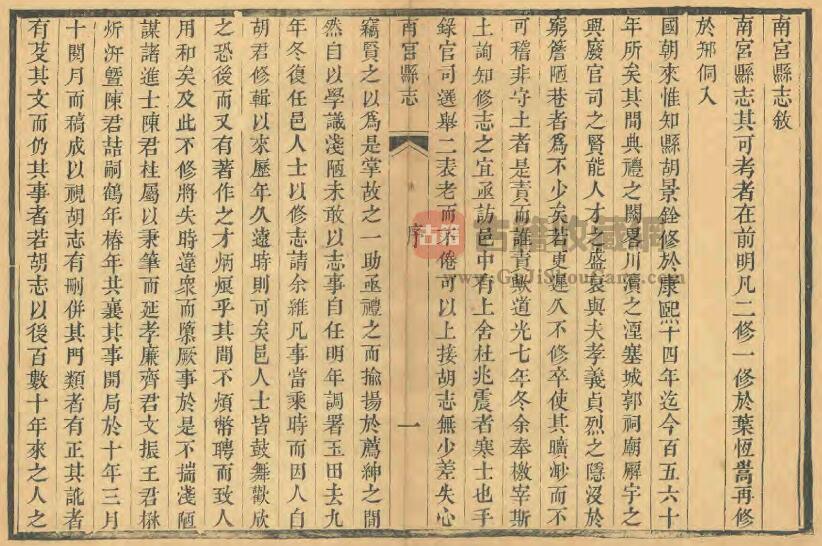 南宮縣志敘
南宮縣志其可考者在前明凡二修一修於葉恆嵩再修
於邢侗入
國朝來惟知縣胡景銓修於康熙十四年迄今百五六十
年所矣其間典禮之闕畧川瀆之湮塞城郭祠廟廨宇之
與廢官司之賢能人才之盛衰與夫孝義貞烈之隱沒於
窮簷陋巷者爲不少矣若更遲久不修卒使其曠渺而不
可稽非守土者是責而誰責歟道光七年冬余奉檄宰斯
土詢知修志之宜亟訪邑中有上舍杜兆震者寒士也手
錄官司選舉二表老而不倦可以上接胡志無少差失心
南宮縣志
序
一
竊賢之以爲是掌故之一助亟禮之而揄揚於薦紳之間
然自以學識淺陋未敢以志事自任明年調署玉田去九
年冬復任邑人士以修志請余維凡事當乘時而因人自
胡君修輯以來歷年久遠時則可矣邑人士皆鼓舞歡欣
之恐後而又有著作之才炳煥乎其間不煩幣聘而致人
用和矣及此不修將失時違衆而隳厥事於是不揣淺陋
謀諸進士陳君柱屬以秉筆而延孝廉齊君文振王君楙
炘洴曁陳君喆嗣鶴年椿年共襄其事開局於十年三月
十閱月而稿成以視胡志有刪併其門類者有正其訛者
有芟其文而仍其事者若胡志以後百數十年來之人之
古籍收藏網
www.GuJiShouCang.com